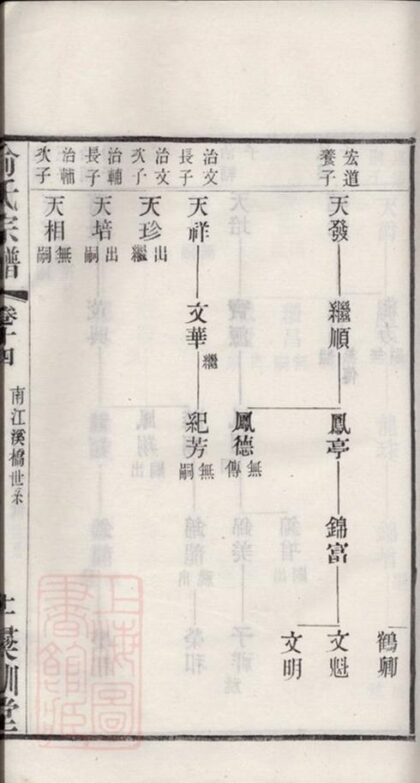 鶴卿
宏道
養子
天發
繼順
鳳亭
錦富
文魁
文明
鳳德
無
傳
治文
長子
天祥
文華
繼
紀芳
無
嗣
治文
次子
天珍
出
繼
治輔
長子
天培
出
嗣
治輔
次子
天相
無
嗣
氏宗譜
卷十四
南江溪橋世系
訓堂
上海圖書館藏